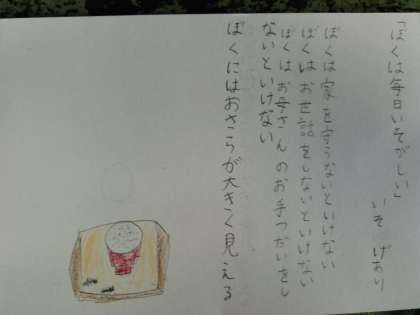 「ぼくは毎日いそがしい」
いそ げあり
ぼくは家を守らないといけない
ぼくはお世話をしないといけない
ぼくはお母さんのお手つだいをし
ないといけない
ぼくにはおさらが大きく見える